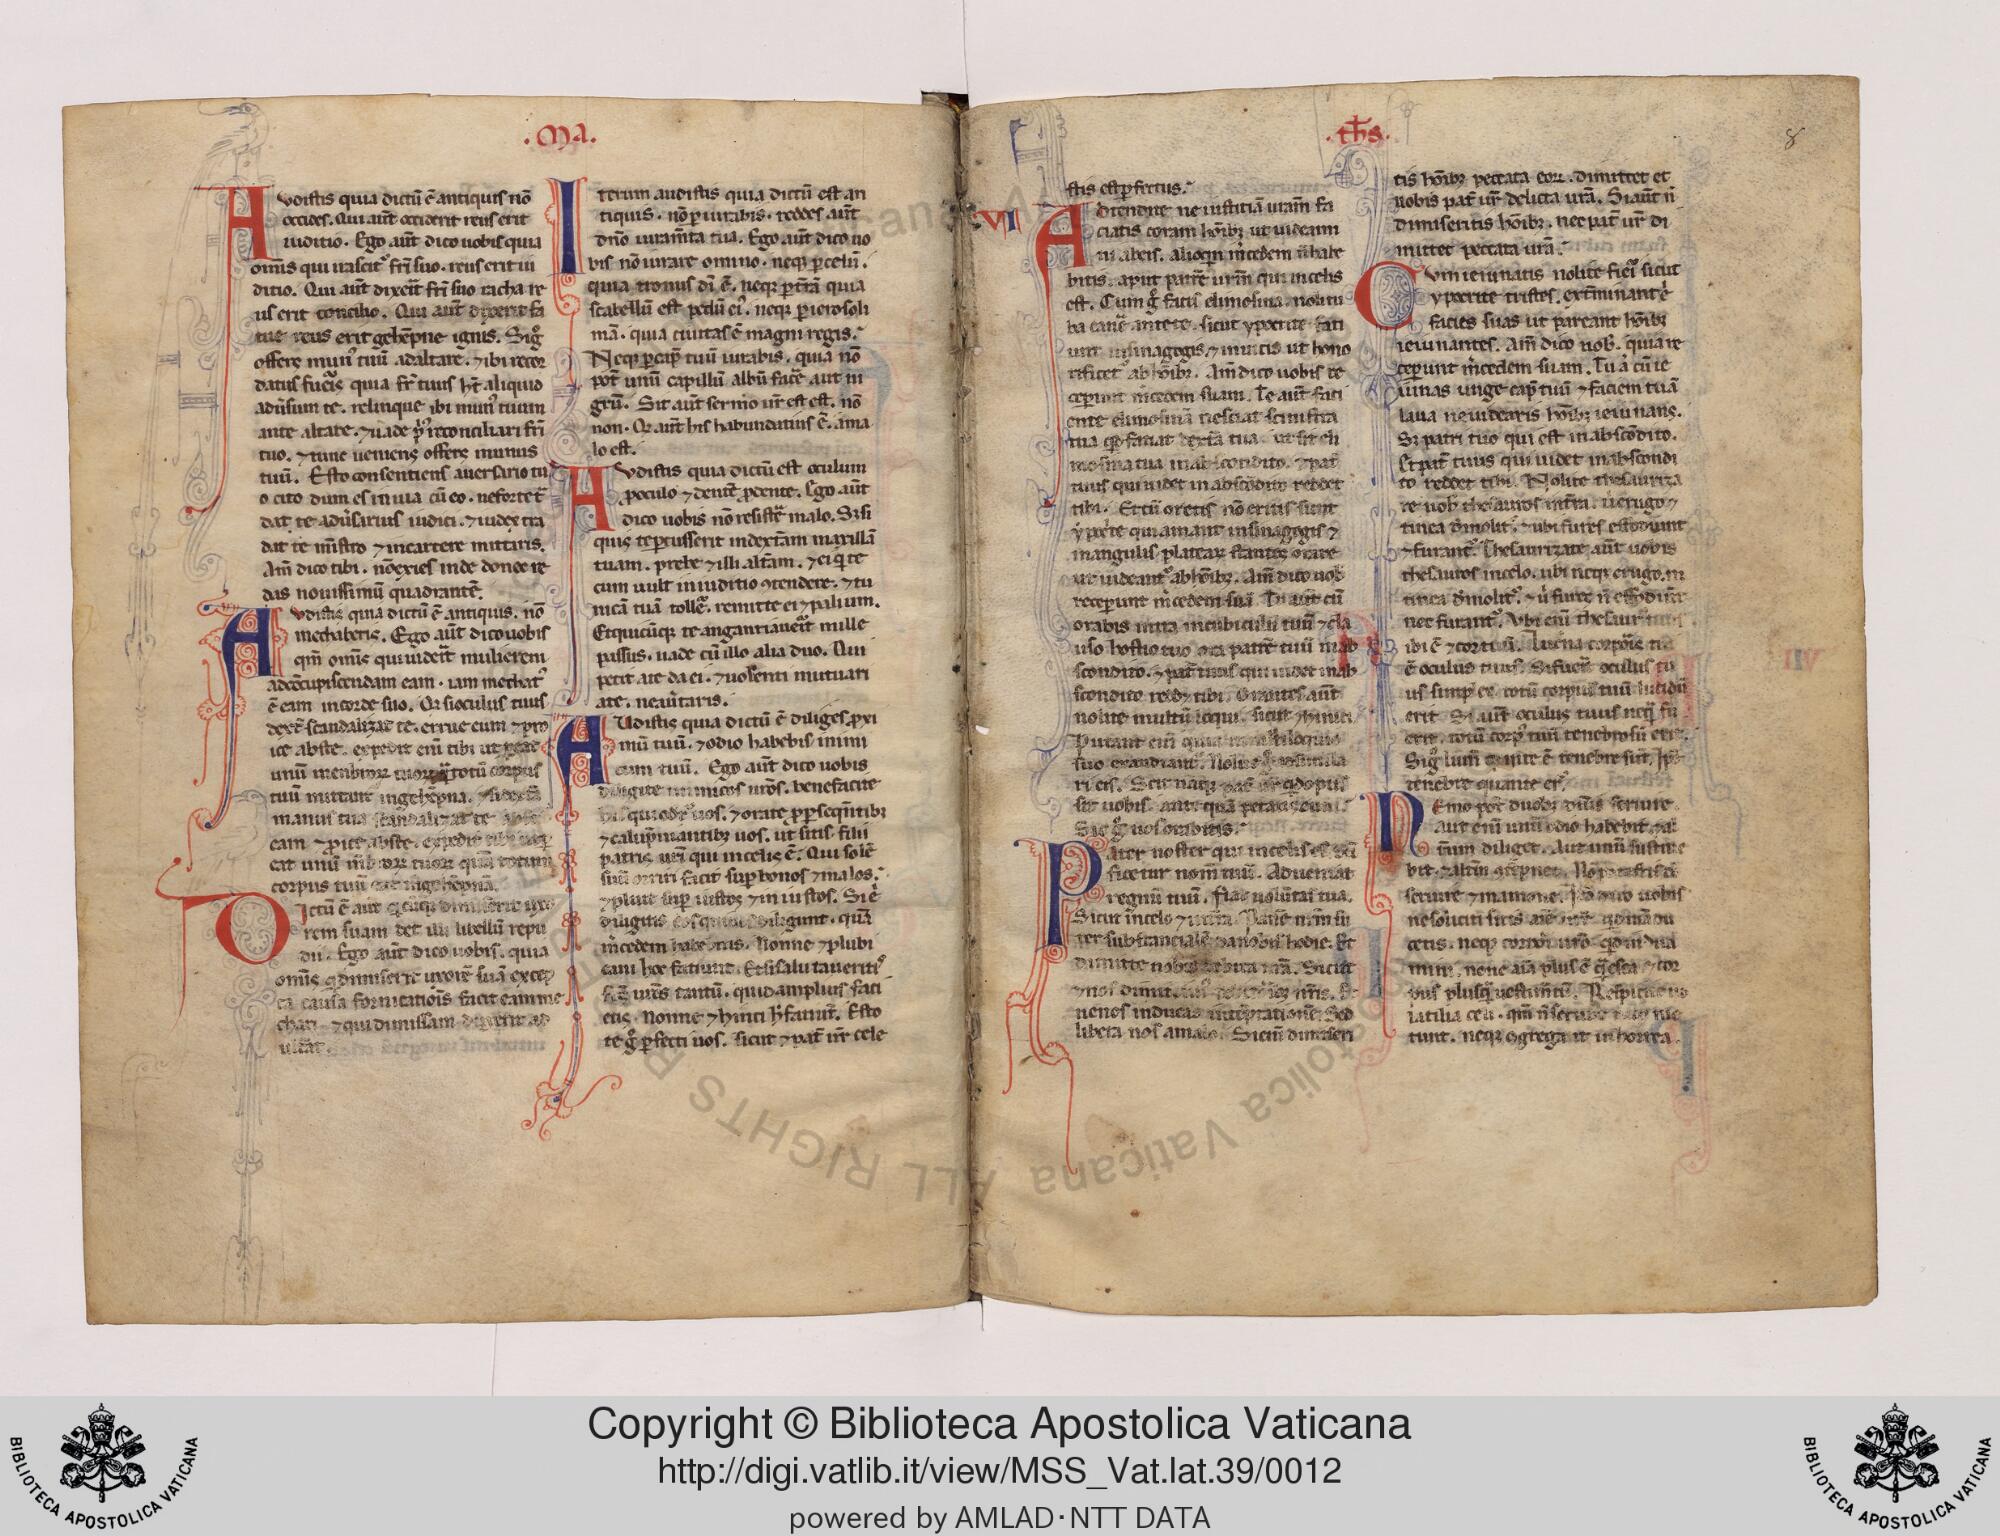 .Ma.
Audistis quia dictũ ẽ antiquis nõ
occides. Qui aũt occiderit reus erit
iuditio. Ego aũt dico uobis quia
omĩs qui irascit᷒ fr̃i suo. reus erit iu
ditio. Qui aũt dixerit fr̃i suo racha re
us erit concilio. Qui aũt dixerit fa
tue reus erit gehẽpne ignis. Sig̃
offers mun᷒ tuũ ad altare. ⁊ ibi recor
datus fueris quia fr̃ tuus ht̃ aliquid
adũsum te. relinque ibi mun᷒ tuum
ante altare. ⁊ uade p᷒ reconciliari fr̃i
tuo. ⁊ tunc ueniens offers munus
tuũ. Esto consentiens auersario tu
o cito dum es in uia cũ eo. ne forte t̃
dat te adũsarius iudici. ⁊ iudex tra
dat te mĩstro ⁊ in carcere mittaris.
Am̃ dico tibi. nõ exies inde donec re
das nouissimũ quadrantẽ.
Audistis quia dictũ ẽ antiquis. nõ
mechaberis. Ego aũt dico uobis
qm̃ omĩs qui uiderit mulierem
ad cõcupiscendam eam. iam mechat᷒
ẽ eam in corde suo. Qr̃ si oculus tuus
dext̃ scandalizat te. errue eum ⁊ pro
ice abs te. expedit eñi tibi ut pereat
unũ membror̃ tuor̃ totũ corpus
tuũ mittatur in gehẽpna.
manus tua scandalizat te
eam ⁊ proice abs te. expedit tibi
eat unũ mẽbror̃ tuor̃ quã totum
corpus tuũ eat in gehẽpnã.
Dictũ ẽ aũt quicũq᷒ dimiserit uxo
rem suam det illi libellũ repu
dii. Ego aũt dico uobis. quia
omĩs q dimiserit uxorẽ suã excep
ta causa fornicatiõis facit eam me
chari. ⁊ qui dimissam duxerit ad
ult̃at.
Iterum audistis quia dictũ est an
tiquis. nõ p̱iurabis. reddes aũt
dño iuram̃ta tua. Ego aũt dico uo
bis nõ iurare omino. neqꝫ p̱ celũ.
quia tronus dĩ ẽ. neqꝫ p̱ t̃rã quia
scabellũ est pedũ ei᷒. neqꝫ p̱ ierosoli
mã. quia ciuitas ẽ magni regis.
Neqꝫ p̱ cap̱ tuũ iurabis. quia nõ
pot̃ unũ capillũ albũ facẽ aut ni
grũ. Sit aũt sermo ur̃ est est. nõ
non. Qr̃ aũt his habundatius ẽ. a ma
lo est.
Audistis quia dictũ est oculum
p̱ oculo ⁊ dent̃ p̱ dente. Ego aũt
dico uobis nõ resister̃ malo. Sꝫ si
quis te p̱cusserit in dext̃am maxillã
tuam. prebe ⁊ illi alt̃am. ⁊ ei q̃ te
cum uult in iuditio ꝯtendere. ⁊ tu
nicã tuã toller̃. remitte ei ⁊ palium.
Et quicũqꝫ te angariauer̃it mille
passus. uade cũ illo alia duo. Qui
petit a te da ei. ⁊ uolenti mutuari
a te. ne aũtaris.
Audistis quia dictũ ẽ diliges p̱xi
mũ tuũ. ⁊ odio habebis inimi
cum tuũ. Ego aũt dico uobis
diligite inimicos ur̃os. benefacite
his qui oder̃ uos. ⁊ orate p̱ p̱seqñtibꝫ
⁊ calup̃niantibꝫ uos. ut sitis filii
patris ur̃i qui in celis ẽ. Qui solẽ
suũ oriri facit sup̱ bonos ⁊ malos.
⁊ pluit sup̱ iustos ⁊ iniustos. Si ẽ
diligitis eos qui uos diligunt. quã
m̃cedem habebitis. Nonne ⁊ plubi
cani hoc faciunt. Et si salutaueritis
fr̃es ur̃os tantũ. quid amplius faci
etis. Nonne ⁊ hnici h̃ faciunt. Esto
te g̃ p̱fecti uos. sicut ⁊ pat̃ ur̃ cele
.ths.
8
stis est p̱fectus.
VI
Attendite ne iustitiã uram̃ fa
ciatis coram hoĩbꝫ ut uideami
ni ab eis. alioq̱in m̃cedem ñ habe
bitis. aput patrẽ urm̃ qui in celis
est. Cum g̃ facis elimosina. noli tu
ba canẽ ante te. sicut ypocrite faci
unt in sinagogis. ⁊ in uicis ut hono
rificet᷒ ab hoĩbꝫ. Am̃ dico uobis re
cep̱unt m̃cedem suam. Te aũt faci
ente elimosinã nesciat sinistra
tua qd̃ faciat dext̃a tua. ut sit eli
mosina tua in abscondito. ⁊ pat̃
tuus qui uidet in abscõdito reddet
tibi. Et cũ oretis nõ eritis sicut
ypocr̃te qui amant in sinagogis ⁊
in angulis platear̃ stantes orare
ut uideant᷒ ab hoĩbꝫ. Am̃ dico uob̃
recep̱unt m̃cedem suã. Tu aũt cũ
orabis intra in cubiculũ tuũ ⁊ cla
uso hostio tuo ora patrẽ tuũ in ab
scondito. ⁊ pat̃ tuus qui uidet in ab
scondito reddꝫ tibi. Orantes aũt
nolite multũ loqui. sicut hnici
Putant eñi quia in multiloquio
suo exaudiant᷒. Nolite g̃ assimila
ri eis. Scit
sit uobis. ante quã petatis eum
Sic g̃ uos orabitis.
Pater noster qui in celis es. sc̃i
ficetur nom̃ tuũ. Adueniat
regnũ tuũ. Fiat uolũtas tua.
Sicut in celo ⁊ in t̃ra. Panẽ nr̃m su
per substancialẽ da nobis hodie. Et
dimitte nobis debita nr̃a. Sicut
⁊ nos dimit nr̃is. Et
ne nos inducas in temptationẽ. Sed
libera nos a malo. Si eñi dimiseri
tis hoĩbꝫ peccata eor̃. dimittet et
uobis pat̃ ur̃ delicta ur̃a. Si aũt ñ
dimiseritis hoĩbꝫ. nec pat̃ ur̃ di
mittet peccata ur̃a.
Cum ieiunatis nolite fieri sicut
ypocrite tristes. ext̃minant ẽ
facies suas ut pareant hoĩbꝫ
ieiunantes. Am̃ dico uob. quia re
cep̱unt m̃cedem suam. Tu aũ cũ ie
iunas unge cap̱ tuũ ⁊ faciem tuã
laua ne uidearis hoĩbꝫ ieiunans.
Sꝫ patri tuo qui est in abscõdito.
Et pat̃ tuus qui uidet in abscondi
to reddet tibi. Nolite thesauriza
re uob̃ thesauros in t̃ra. ubi erugo ⁊
tinea d̃molit᷒. ⁊ ubi fures effodiunt
⁊ furant᷒. Thesaurizate aũt uobis
thesauros in celo. ubi neqꝫ erugo. n
tinea d̃molit᷒. ⁊ ũ fures ñ effodiũt
nec furant᷒. Vbi eñi thesaur᷒ tuus
ibi ẽ ⁊ cor tuũ. Lucerna corporis tui
ẽ oculus tuus. Si fuerit oculus tu
us simplex. totũ corpus tuũ lucidũ
erit. Si aũt oculus tuus neqꝫ fu
erit. totũ corp᷒ tuũ tenebrosũ erit.
Sig̃ lum̃ quod in te ẽ tenebre sũt. Ip̱e
tenebre quante er̃t.
Nemo pot̃ duobꝫ dñis seruire.
Aut eñi unũ odio habebit. ⁊ al
t̃um diliget. Aut unũ sustine
bit. ⁊ alt̃m ꝯtẽpnet. Nõ potestis dõ
seruire ⁊ mamone. Iõ dico uobis
ne soliciti sitis aĩe ur̃e quid mãdu
cetis. neqꝫ corpori ur̃o. qd̃ indua
mini. nõne aĩa plus ẽ q̃ esca. ⁊ cor
pus plusq̃ uestim̃tũ. Respicite uo
latilia celi. qm̃ ñ serũt neqꝫ me
tunt. neqꝫ ꝯgregant in horrea.
VII
Copyright © Biblioteca Apostolica Vaticana
http://digi.vatlib.it/view/MSS_Vat.lat.39/0012
powered by AMLAD·NTT DATA
BIBLIOTECA APOSTOLICA VATICANA
BIBLIOTECA APOSTOLICA VATICANA